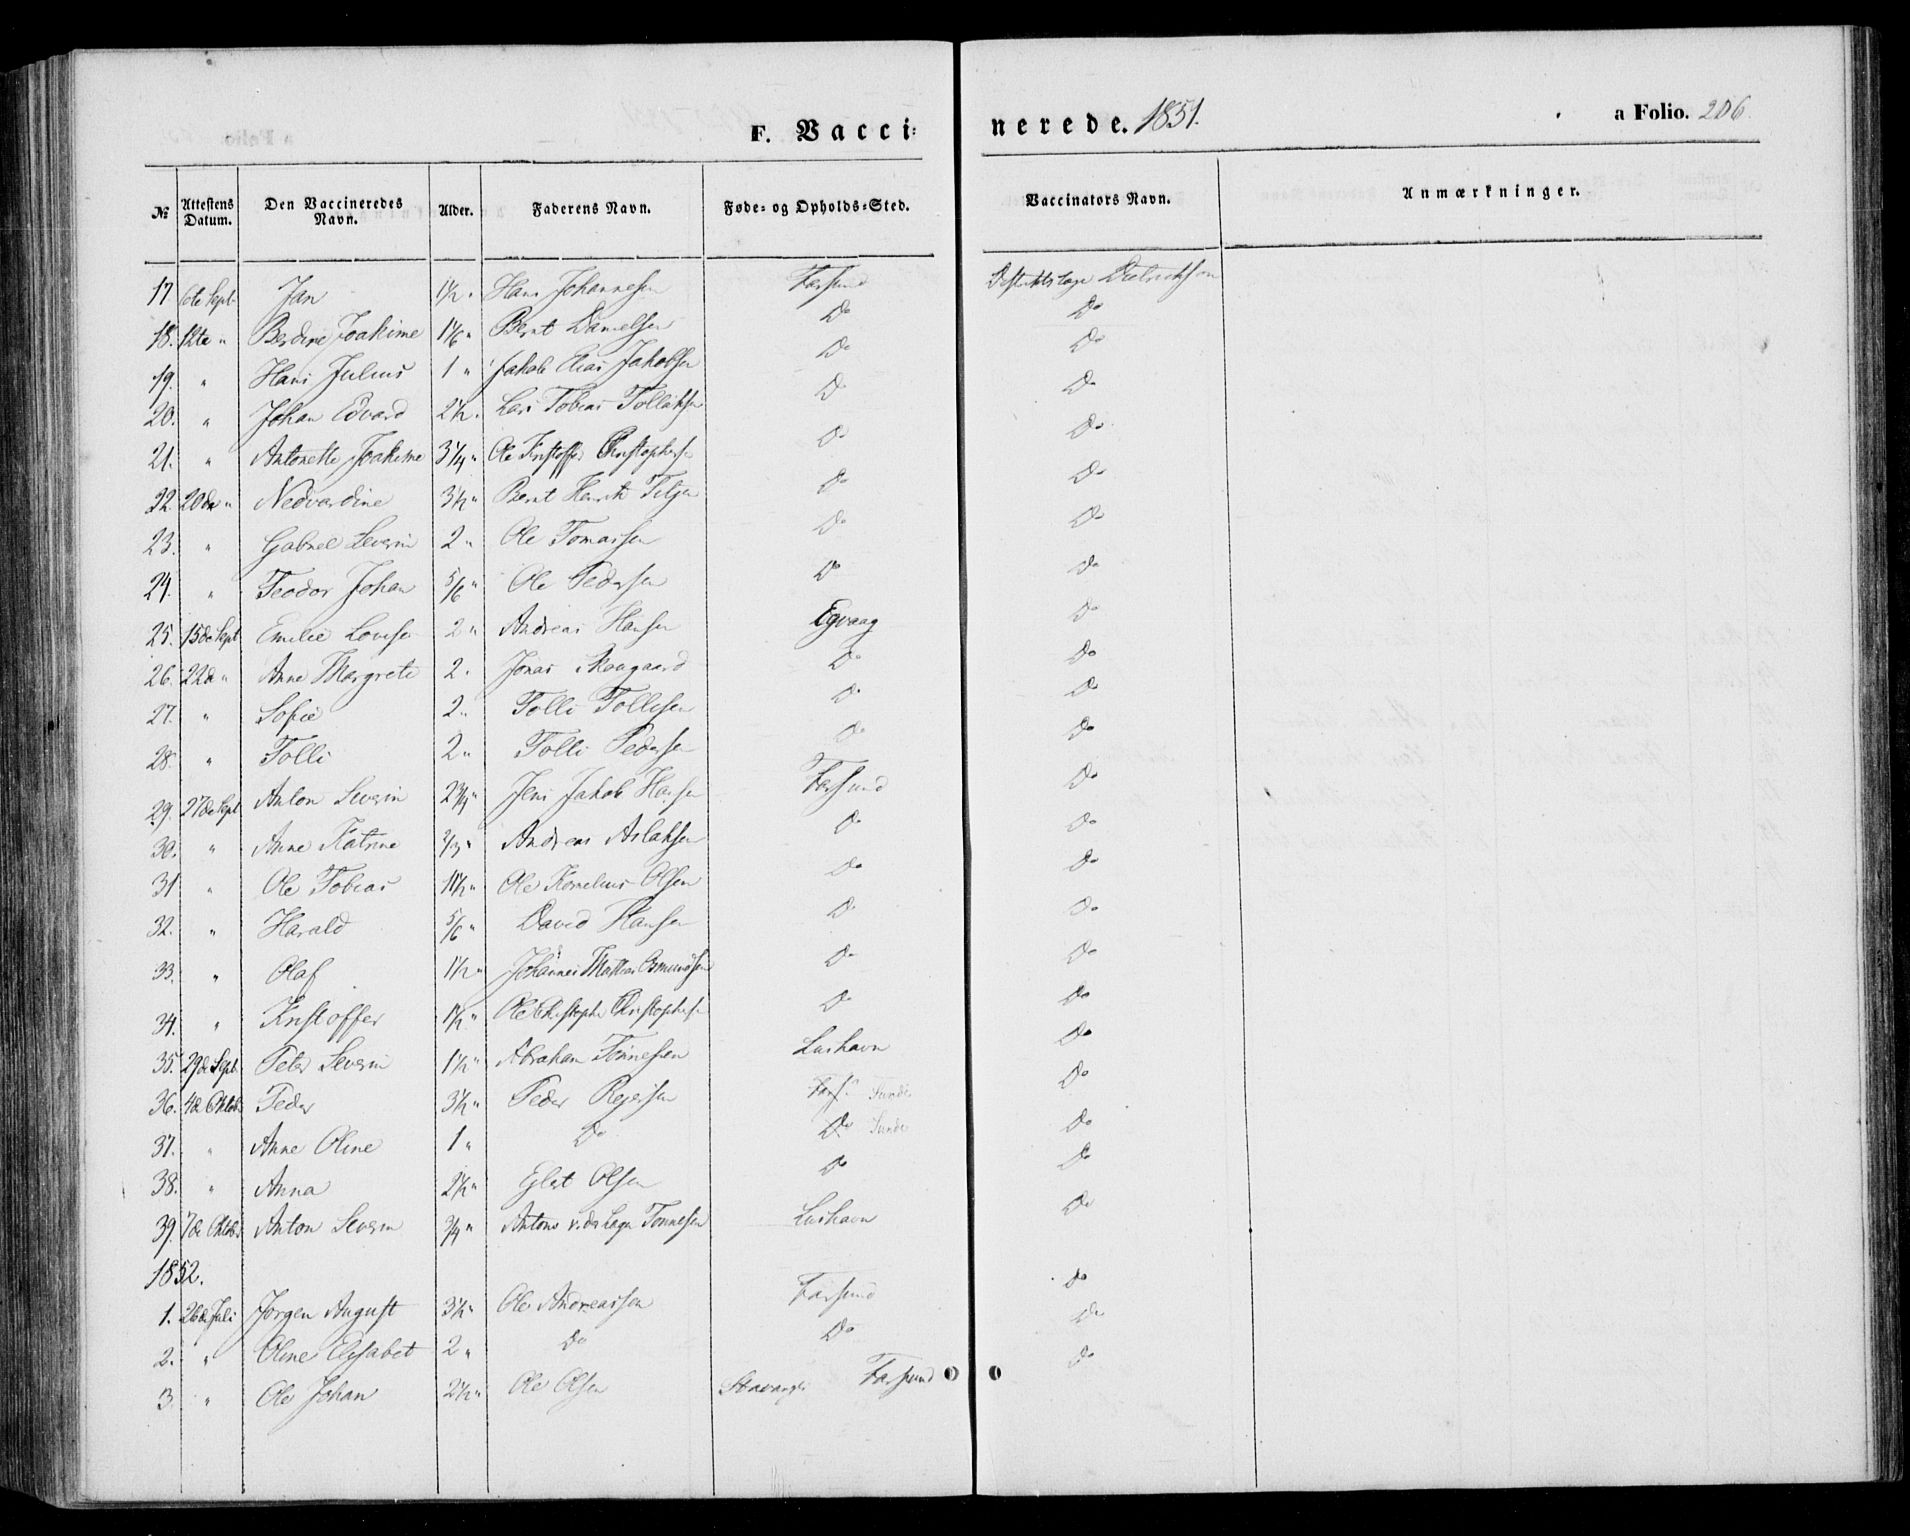 F. Vaccinerede. 1851. a Folio. 206.
№ Attestens Datum. Den Vaccineredes Navn. Alder. Faderens Navn. Føde- og Opholds-Sted. Vaccinators Navn. Anmærkninger.
17 6te Sept. Jan 1½ " Hans Johannesen Farsund Distriktslæge Dietrichson
18. 12te " Berdine Joakime 1 1/6 " Bernt Danielsen Do Do
19. " Hans Julius 1 " Jakob Elias Jakobsen Do Do
20. " Johan Edvard 2½ " Lars Tobias Tollaksen Do Do
21. " Antonette Joakime 3¼ " Ole Kristoffer Christophersen Do Do
22. 20de " Nedvardine 3½ " Bernt Henrik Do Do
23. " Gabriel Severin 2 " Ole Tomassen Do Do
24. " Teodor Johan 5/6 " Ole Pedersen Do Do
25. 15de Sept Emilie Lovise 2 " Andreas Hansen Egvaag Do
26. 22de " Anne Margrete 2 " Jonas Skaagaard Do Do
27. " Sofie 2 " Tolli Tollisen Do Do
28. " Tolli 2 " Tolli Pedersen Do Do
29. 27de Sept Anton Severin 2¾ " Jens Jakob Hansen Farsund Do
30. " Anne Katrine 2/3 " Andreas Aslaksen Do Do
31 " Ole Tobias 11½ " Ole Kornelius Olsen Do Do
32. " Harald 5/6 " David Hansen Do Do
33. " Olaf 1½ " Johannes Mathias Osmundsen Do Do
34. " Kristoffer 1½ " Ole Christopher Christophersen Do Do
35. 29de Sept. Peter Severin 1½ " Abraham Tønnessen Lushavn Do
36. 4de Oktob. Peder 3½ " Peder Rejersen Fars. Sunde Do
37. " Anne Oline 1 " Do Do Sunde Do
38. " Anna 2½ " Eilert Olsen Do Do
39. 7de Oktob. Anton Severin ¾ " Antons v. der Lagn Tønnesen Lushavn Do
1852.
1. 26de Juli Jørgen August 3½ " Ole Andreassen Farsund Do
2. " Oline Elisabet 2 " Do Do Do
3. " Ole Johan 2½ " Ole Olsen Farsund Do